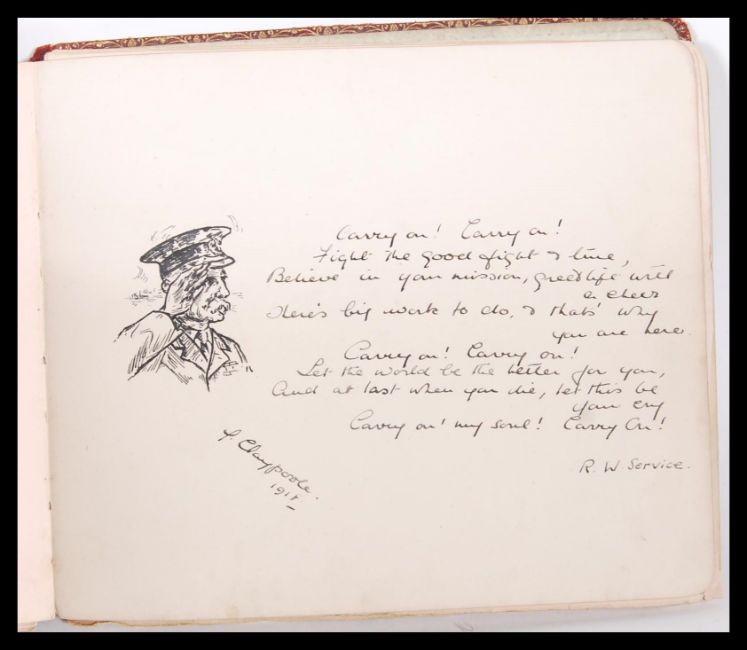 Carry on! Carry on!
Fight the good fight & true,
Believe in your mission, greet life with
a cheer
There's big work to do, & thats' why
you are here.
Carry on! Carry on!
Let the world be the better for you,
And at last when you die, let this be
your cry
Carry on! my soul! Carry On!
R. W. Service.
Claypoole.